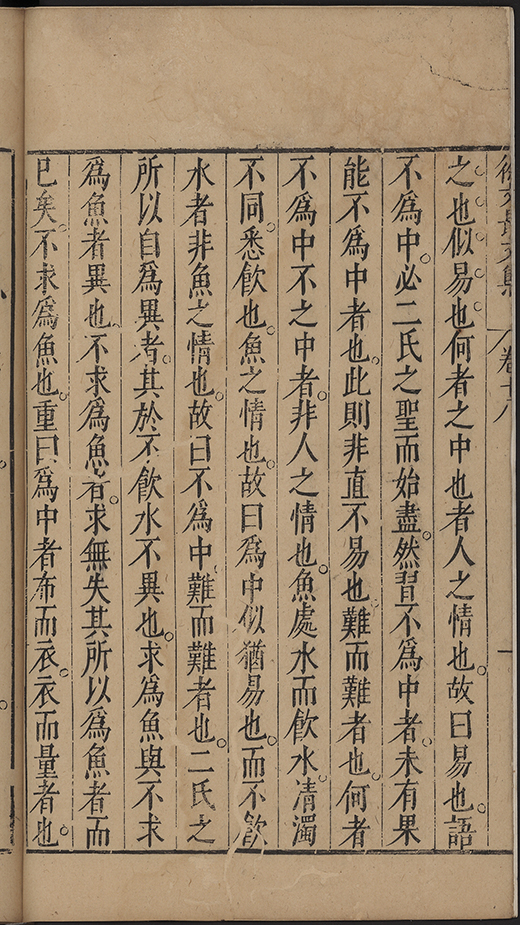 徐文長文集 卷十八 一
之也似易也何者之中也者人之情也故曰易也語
不爲中必二氏之聖而始盡然習不爲中者未有果
能不爲中者也此則非直不易也難而難者也何者
不爲中不之中者非人之情也魚處水而飮水清濁
不同悉飮也魚之情也故曰爲中似猶易也而不飮
水者非魚之情也故曰不爲中難而難者也二氏之
所以自爲異者其於不飮水不異也求爲魚與不求
爲魚者異也不求爲魚者求無失其所以爲魚者而
已矣不求爲魚也重曰爲中者布而衣衣而量者也